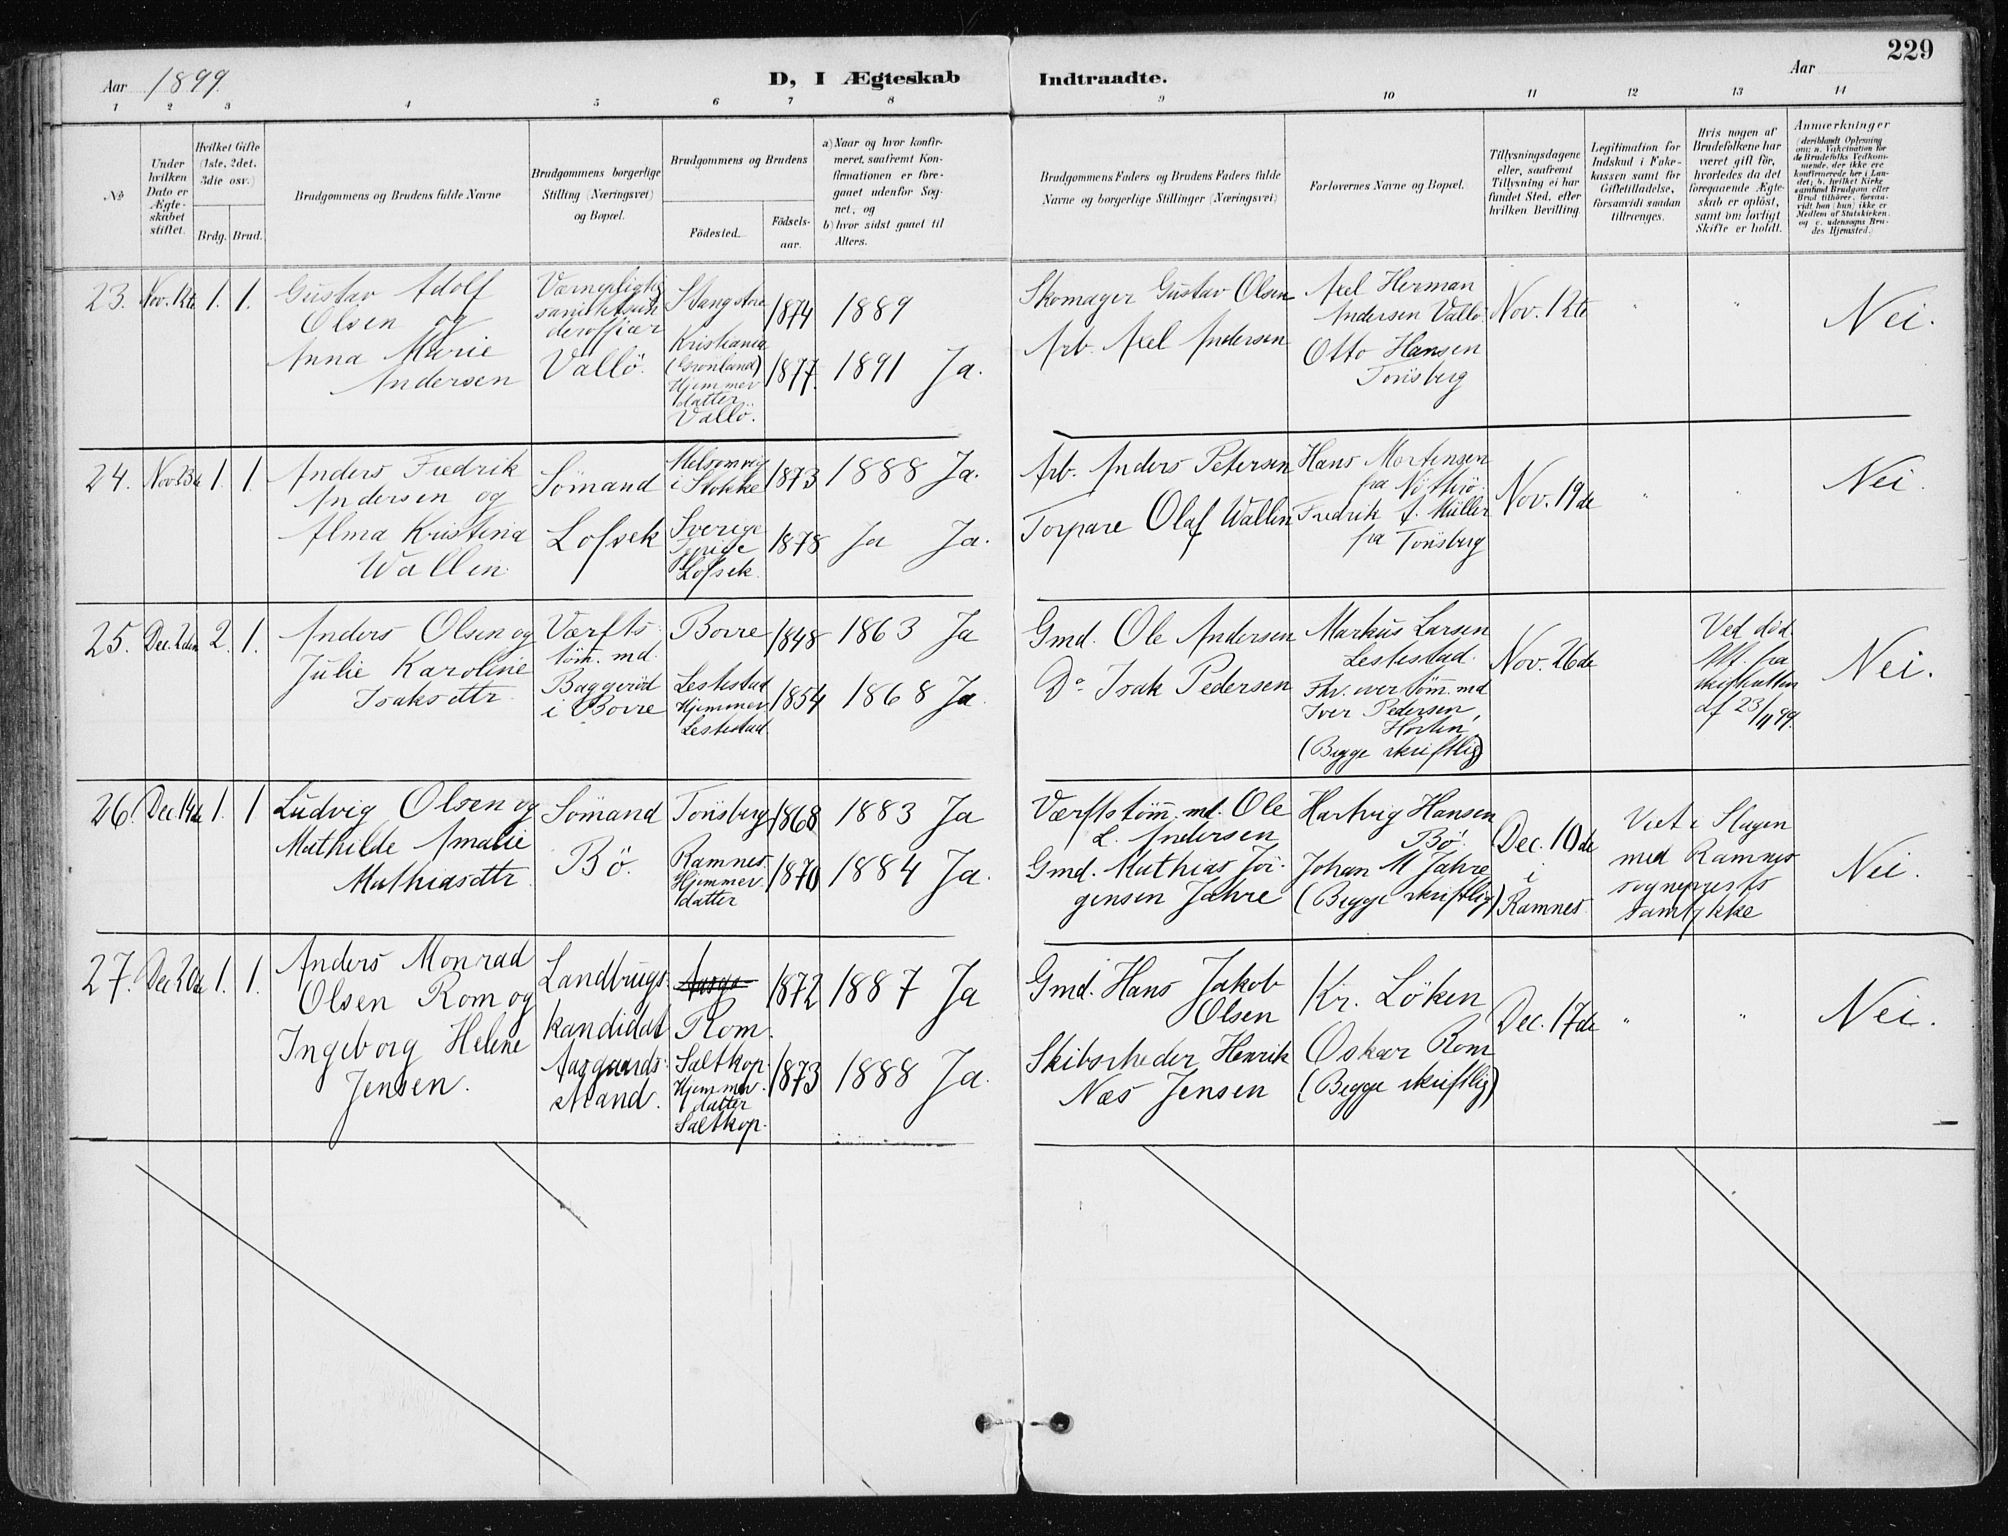 229
Aar 1899.
D, I Ægteskab Indtraadte.
Aar
1 2 3 4 5 6 7 8 9 10 11 12 13 14
No
Under hvilken Dato er Ægteskabet stiftet.
Hvilket Gifte (1ste, 2det, 3die osv.)
Brdg. Brud.
Brudgommens og Brudens fulde Navne
Brudgommens borgerlige Stilling (Næringsvei) og Bopæl.
Brudgommens og Brudens
Födested.
Födselsaar.
a) Naar og hvor konfirmeret, saafremt Konfirmationen er foregaaet udenfor Sognet, og
b) hvor sidst gaaet til Alters.
Brudgommens Faders og Brudens Faders fulde Navne og borgerlige Stillinger (Næringsvei)
Forlovernes Navne og Bopæl.
Tillysningsdagene eller, saafremt Tillysning ei har fundet Sted, efter hvilken Bevilling.
Legitimation for Indskud i Fakekassen samt for Giftetilladelse, forsaavidt saadan tiltrænges.
Hvis nogen af Brudefolkene har været gift för, hvorledes da det foregaaende Ægteskab er oplöst, samt om lovligt Skifte er holdt.
Anmærkninger
(deriblandt Oplysning om: a. Vakcination for de Brudefolks Vedkommende, der ikke ere konfirmerede her i Landet; b. hvilket Kirkesamfund Brudgom eller Brud tilhörer, forsaavidt han (hun) ikke er Medlem af Statskirken, og c. udensogns Brudes Hjemsted.)
23. Nov. 12te 1. 1.
Gustav Adolf
Olsen og
Anna Marie
Andersen
Værnepligtig
sanitetsun
derofficer
Vallö.
Slang
1874 1889
Kristiania
(Grönland)
Hjemmev.
datter
Vallö.
1877. 1891 Ja.
Skomager Gustav Olsen
Arb. Axel Andersen
Axel Herman
Andersen Vallö
Otto Hansen
Tönsberg
Nov. 12te
" "
Nei.
24. Nov. 23de 1. 1.
Anders Fredrik
Andersen og
Alma Kristina
Wallen
Sömand
Lofsek
Melsomvig
i Stokke
1873 1888 Ja.
Sverige
Lofsek.
1878 Ja Ja.
Arb. Anders Petersen
Torpare Olaf Wallin
Hans Mortensen
fra Nötterö.
Fredrik A. Müller
fra Tönsberg
Nov. 19de
" "
Nei.
25. Dec. 2den 2. 1.
Anders Olsen og
Julie Karoline
Isaksdtr.
Værfts
töm. md.
Baggeröd
i Borre
Borre 1848 1863 Ja
Lestestad
Hjemmev
Lestestad.
1854 1868 Ja.
Gmd. Ole Andersen
Do. Isak Pedersen
Markus Larsen
Lestestad.
Fhv. töm. md
Iver Pedersen,
Horten,
(Begge skriftlig)
Nov. 26de
Ved död.
Att. fra
skifteretten
af 23/11 99.
Nei.
26. Dec. 14de 1. 1
Ludvig Olsen og
Mathilde Amalie
Mathiasdtr.
Sömand
Bö.
Tönsberg 1868 1883 Ja
Ramnes
Hjemmev.
datter
1870 1884 Ja.
Værftstöm. md. Ole
L. Andersen
Gmd. Mathias Jör-
gensen Jahre
Hartvig Hansen
Bö.
Johan M Jahre
(Begge skriftlig)
Dec. 10de
i
Ramnes
Viet i Slagen
med Ramnes
sognepræsts
samtykke
Nei.
27. Dec 20de 1. 1.
Anders Monrad
Olsen Rom og
Ingeborg Helene
Jensen.
Landbrugs-
kandidat
Aasgaards-
strand.
Rom.
1872 1887 Ja
Saltkop.
Hjemmev.
datter
Saltkop.
1873 1888 Ja.
Gmd. Hans Jakob
Olsen
Skibsrheder Henrik
Næs Jensen
Kr. Löken
Oskar Rom
(Begge skriftlig)
Dec. 17de
" "
Nei.